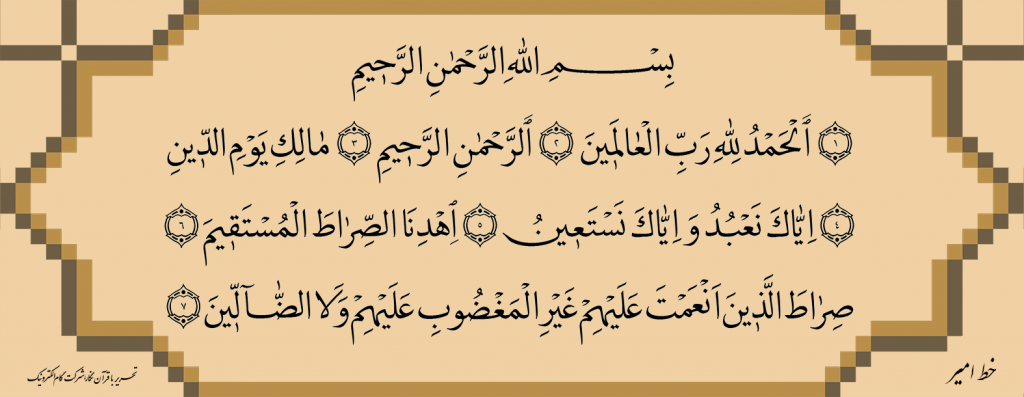 بِسْمِ اللهِ الرَّحْمٰنِ الرَّحِيمِ
۝١ اَلْحَمْدُ لِلّٰهِ رَبِّ الْعَالَمِينَ ۝٢ اَلرَّحْمٰنِ الرَّحِيمِ ۝٣ مَالِكِ يَوْمِ الدِّينِ
۝٤ اِيَّاكَ نَعْبُدُ وَ اِيَّاكَ نَسْتَعِينُ ۝٥ اِهْدِنَا الصِّرَاطَ الْمُسْتَقِيمَ ۝٦
صِرَاطَ الَّذِينَ اَنْعَمْتَ عَلَيْهِمْ غَيْرِ الْمَغْضُوبِ عَلَيْهِمْ وَلَا الضَّآلِّينَ ۝٧
خط امیر
تحریر با قرآن نگار شرکت کام الکترونیک